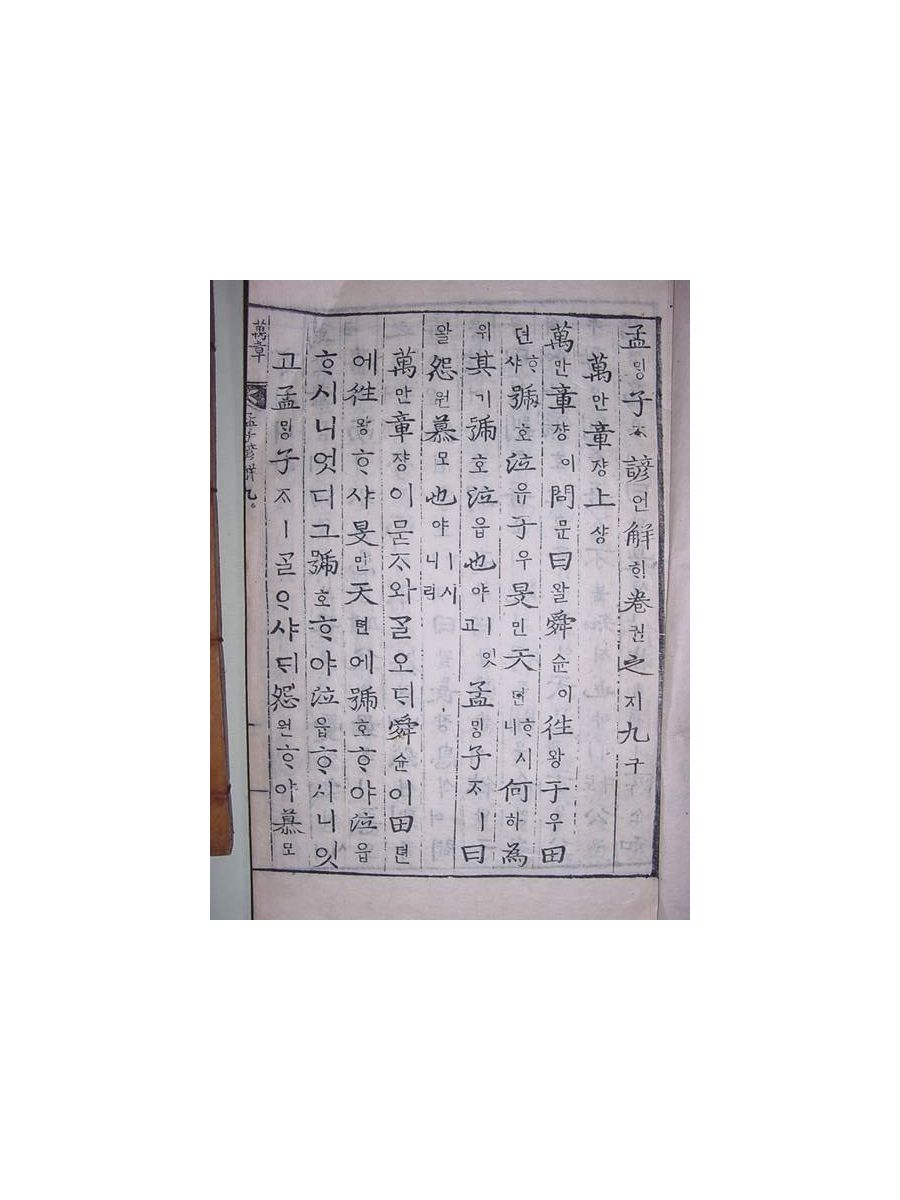 孟ᄆᆡᆼ子ᄌᆞ諺언解ᄒᆡ卷권之지九구
萬만章쟝上샹
萬만章쟝이問문曰왈舜슌이往왕于우田
뎐ᄒᆞ샤號호泣읍于우旻민天텬ᄒᆞ시니何하為
위其기號호泣읍也야ㅣ잇고孟ᄆᆡᆼ子ᄌᆞㅣ曰
왈怨원慕모也야ㅣ시니라
萬만章쟝이묻ᄌᆞ와ᄀᆞᆯ오ᄃᆡ舜슌이田뎐
에往왕ᄒᆞ샤旻민天텬에號호ᄒᆞ야泣읍
ᄒᆞ시니엇디그號호ᄒᆞ야泣읍ᄒᆞ시니잇
고孟ᄆᆡᆼ子ᄌᆞㅣᄀᆞᆯᄋᆞ샤ᄃᆡ怨원ᄒᆞ야慕모
萬章
孟子諺解九。